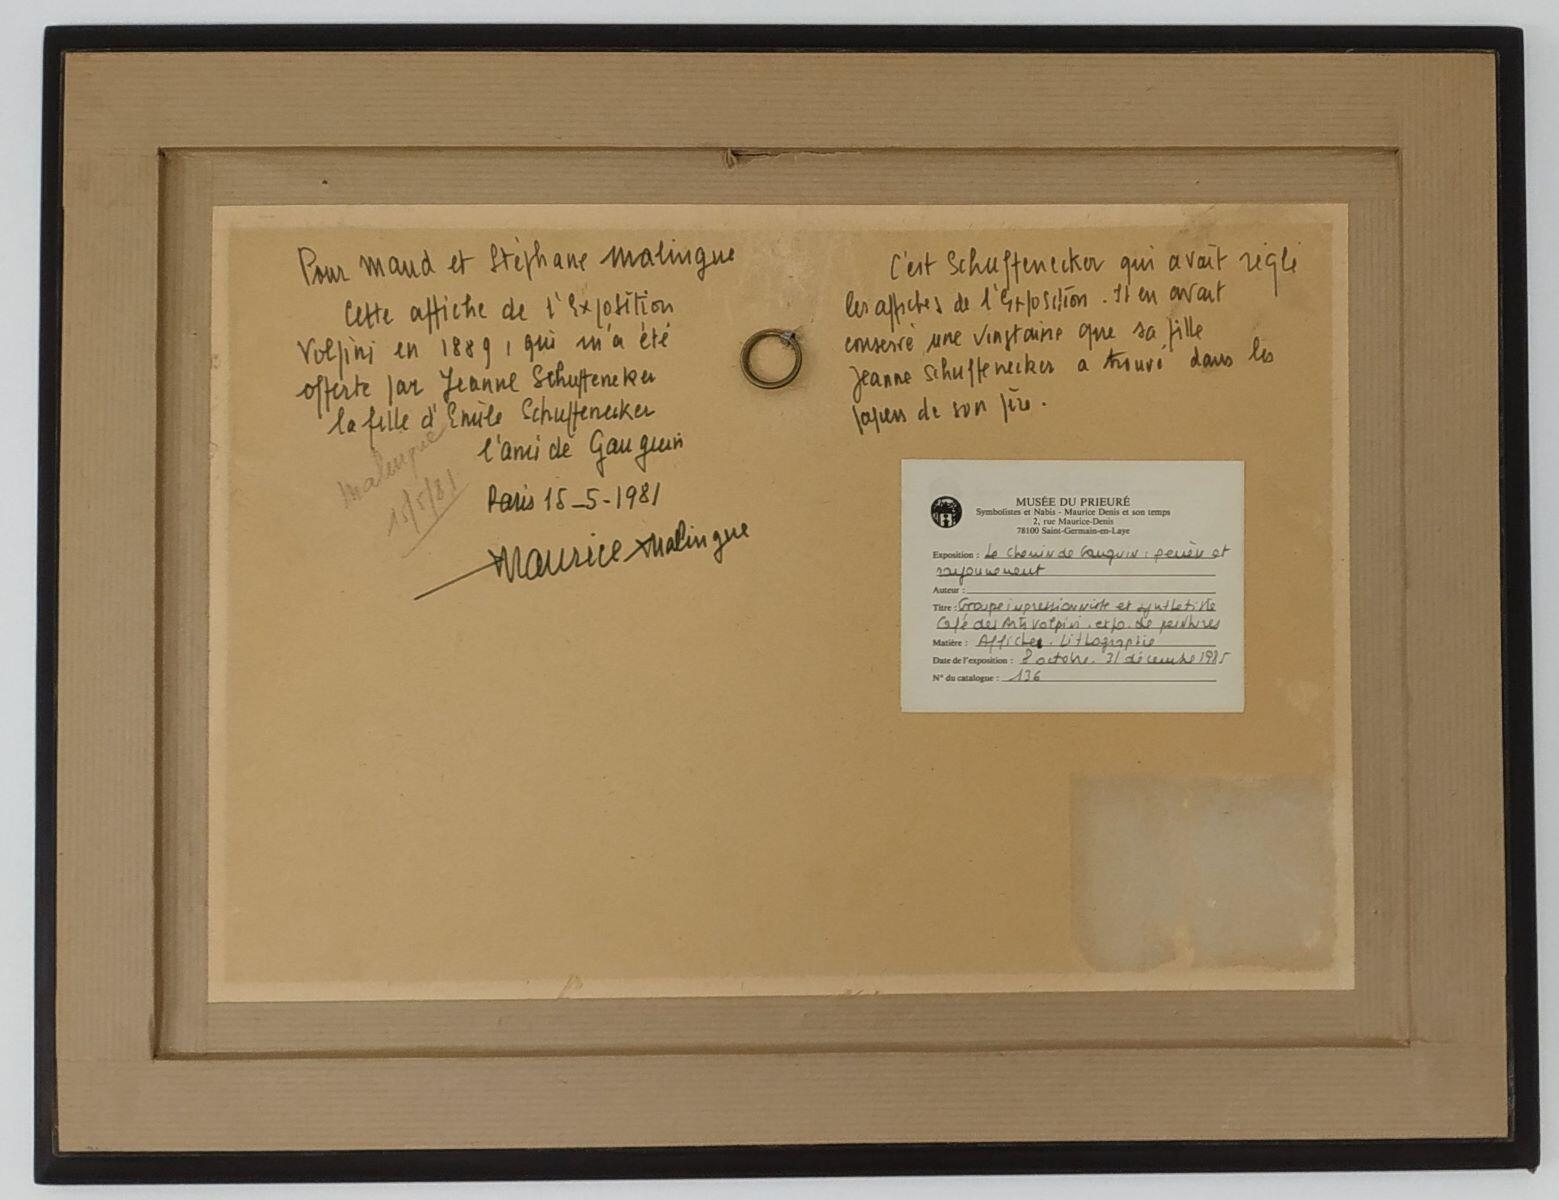 Pour Maud et Stéphane Malingue
Cette affiche de l'Exposition
Volpini en 1889, qui m'a été
offerte par Jeanne Schuffenecker
la fille d'Emile Schuffenecker
l'ami de Gauguin
Paris 15-5-1981
Maurice Malingue
Malingue
15/5/81
C'est Schuffenecker qui avait réglé
les affiches de l'Exposition. Il en avait
conservé une vingtaine que sa fille
Jeanne Schuffenecker a trouvé dans les
papiers de son père.
MUSÉE DU PRIEURÉ
Symbolistes et Nabis - Maurice Denis et son temps
2, rue Maurice-Denis
78100 Saint-Germain-en-Laye
Exposition : Le Chemin de Gauguin : genèse et
rayonnement
Auteur :
Titre : Groupe impressionniste et synthetiste
Café des Arts Volpini. expo. de peintures
Matière : Affiche. Lithographie
Date de l'exposition : 8 octobre. 31 décembre 1985
N° du catalogue : 136